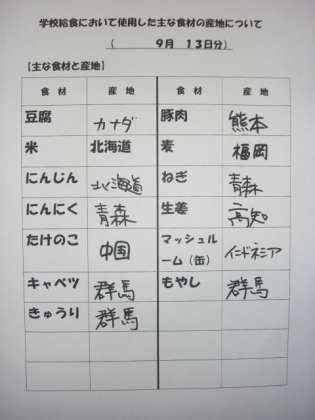 学校給食において使用した主な食材の産地について
( 9月 13日分)
【主な食材と産地】
食 材 産 地 食 材 産 地
豆腐 カナダ 豚肉 熊本
米 北海道 麦 福岡
にんじん 北海道 ねぎ 青森
にんにく 青森 生姜 高知
たけのこ 中国 マッシュル
ーム(缶) インドネシア
キャベツ 群馬 もやし 群馬
きゅうり 群馬